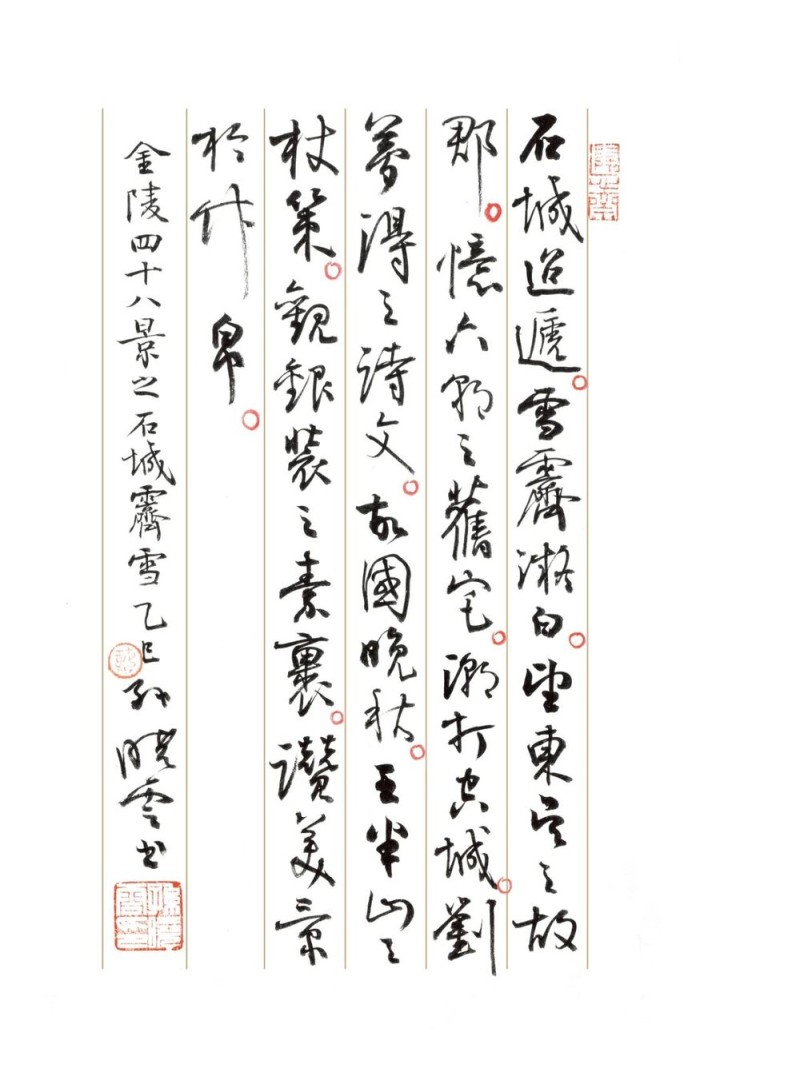 石城迢遞。雪霽凝白。望東吳之故
郡。憶六朝之舊宅。潮打空城。劉
夢得之詩文。故國晚秋。王半山之
杖策。觀銀裝之素裹。讚美景
於竹帛。
金陵四十八景之石城霽雪乙巳孫曉雲書